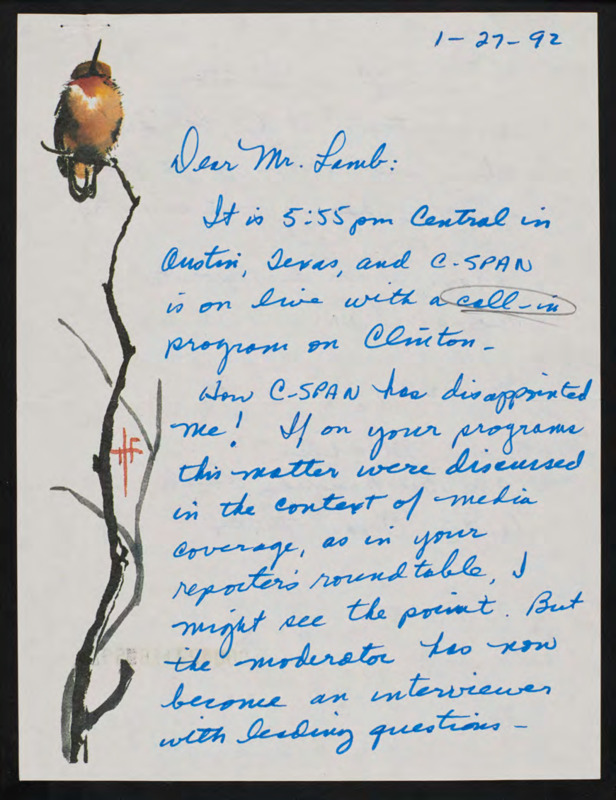 1-27-92
Dear Mr. Lamb:
It is 5:55 pm Central in
Austin, Texas, and C-SPAN
is on live with a call-in
program on Clinton -
How C-SPAN has disappointed
me! If on your programs
this matter were discussed
in the context of media
coverage, as in your
reporter's roundtable, I
might see the point. But
the moderator has now
become an interviewer
with leading questions -